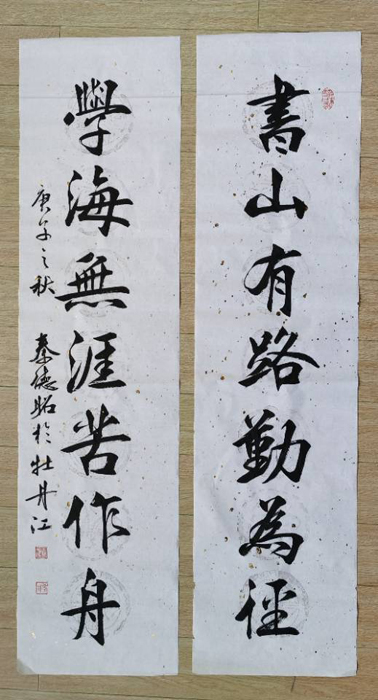 書山有路勤為徑
學海無涯苦作舟
庚午之秋 秦德昭於牡丹江